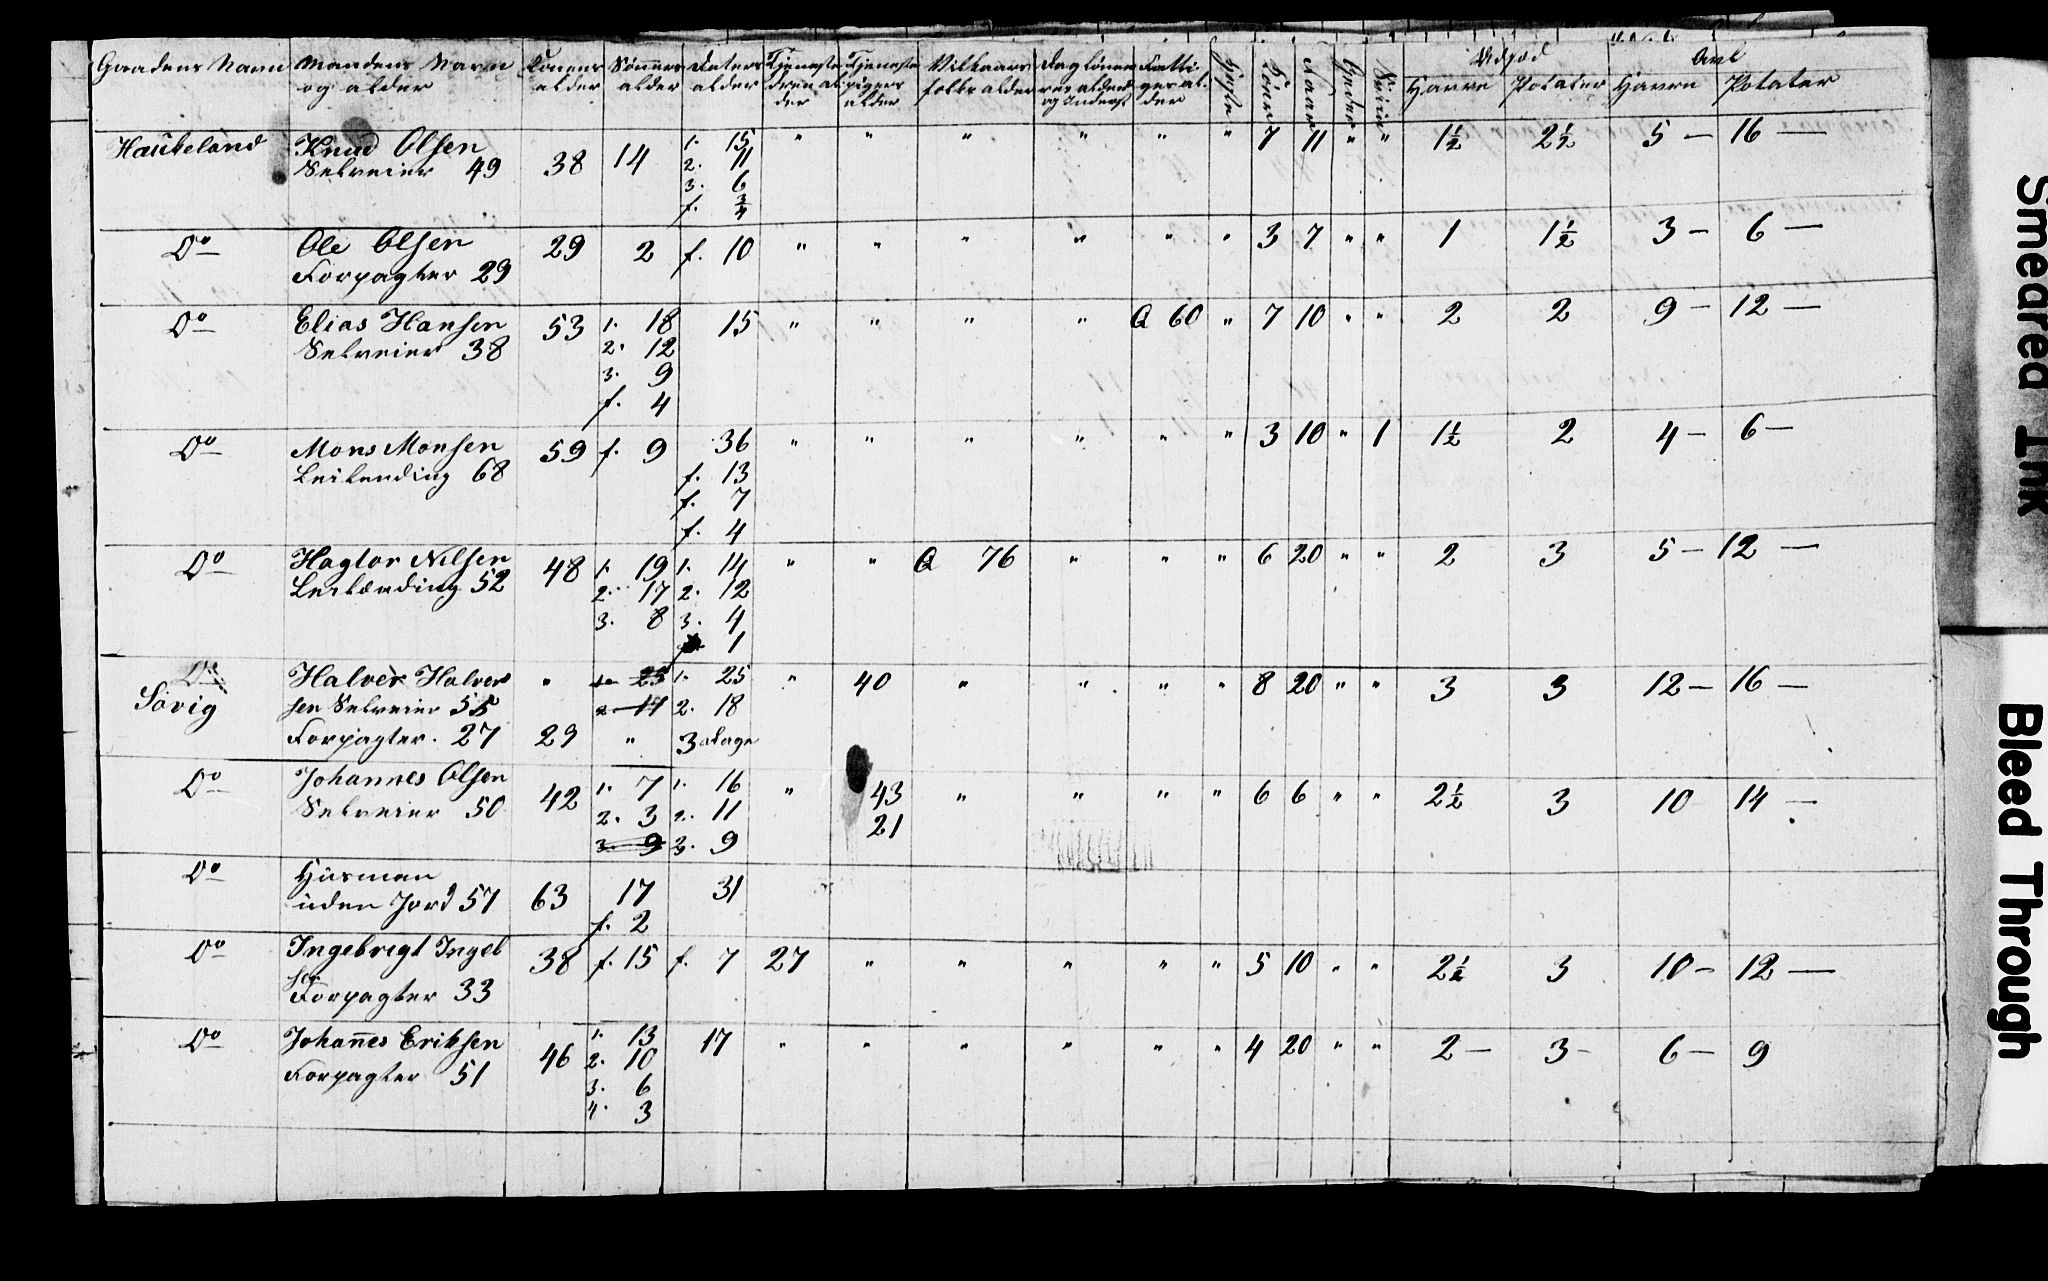 Gaardens Navn | Mandens Navn og alder | Konens alder | Sönners alder | Døtres alder | Tjeneste drenes alder | Tjeneste pigers alder | Vilkaars folks alder | Dag lönne res alder og Inderst | Fatti ges al- der | Heste | Köer | Faar | Geder | Sviin | Udsæd Havre | Potater | Avl Havre | Potater
Haukeland | Knud Olsen Selveier 49 | 38 | 14 | 1. 15 2. 11 3. 6 f. 3/4 | " | " | " | " | " | " | 7 | 11 | " | " | 1½ | 2½ | 5 – | 16 –
Do | Ole Olsen Forpagter 29 | 29 | 2 | f. 10 | " | " | " | " | " | " | 3 | 7 | " | " | 1 | 1½ | 3 – | 6 –
Do | Elias Hansen Selveier 38 | 53 | 1. 18 2. 12 3. 9 f. 4 | 15 | " | " | " | " | Q 60 | " | 7 | 10 | " | " | 2 | 2 | 9 – | 12 –
Do | Mons Monsen Leilending 68 | 59 | f. 9 | 36 f. 13 f. 7 f. 4 | " | " | " | " | " | " | 3 | 10 | " | 1 | 1½ | 2 | 4 – | 6 –
Do | Hagtor Nilsen Leilænding 52 | 48 | 1. 19 2. 17 3. 8 | 1. 14 2. 12 3. 4 1 | " | " | Q 76 | " | " | " | 6 | 20 | " | " | 2 | 3 | 5 – | 12 –
Do Søvig | Halver Halver sen Selveier 55 | " | 1. 25 2. 17 | 1. 25 2. 18 | " | 40 | " | " | " | " | 8 | 20 | " | " | 3 | 3 | 12 – | 16 –
Forpagter. 27 | 29 | " | 3 Dage
Do | Johannes Olsen Selveier 50 | 42 | 1. 7 2. 3 3. 9 | 1. 16 2. 11 3. 9 | " | 43 21 | " | " | " | " | 6 | 6 | " | " | 2½ | 3 | 10 | 14 –
Do | Husman uden Jord 57 | 63 | 17 f. 2 | 31
Do | Ingebregt Ingeb sen Forpagter 33 | 38 | f. 15 | f. 7 | 27 | " | " | " | " | " | 5 | 10 | " | " | 2½ | 3 | 10 – | 12 –
Do | Johannes Eriksen Forpagter 51 | 46 | 1. 13 2. 10 3. 6 4. 3 | 17 | " | " | " | " | " | " | 4 | 20 | " | " | 2 – | 3 – | 6 – | 9
Smeared Ink
Bleed Through